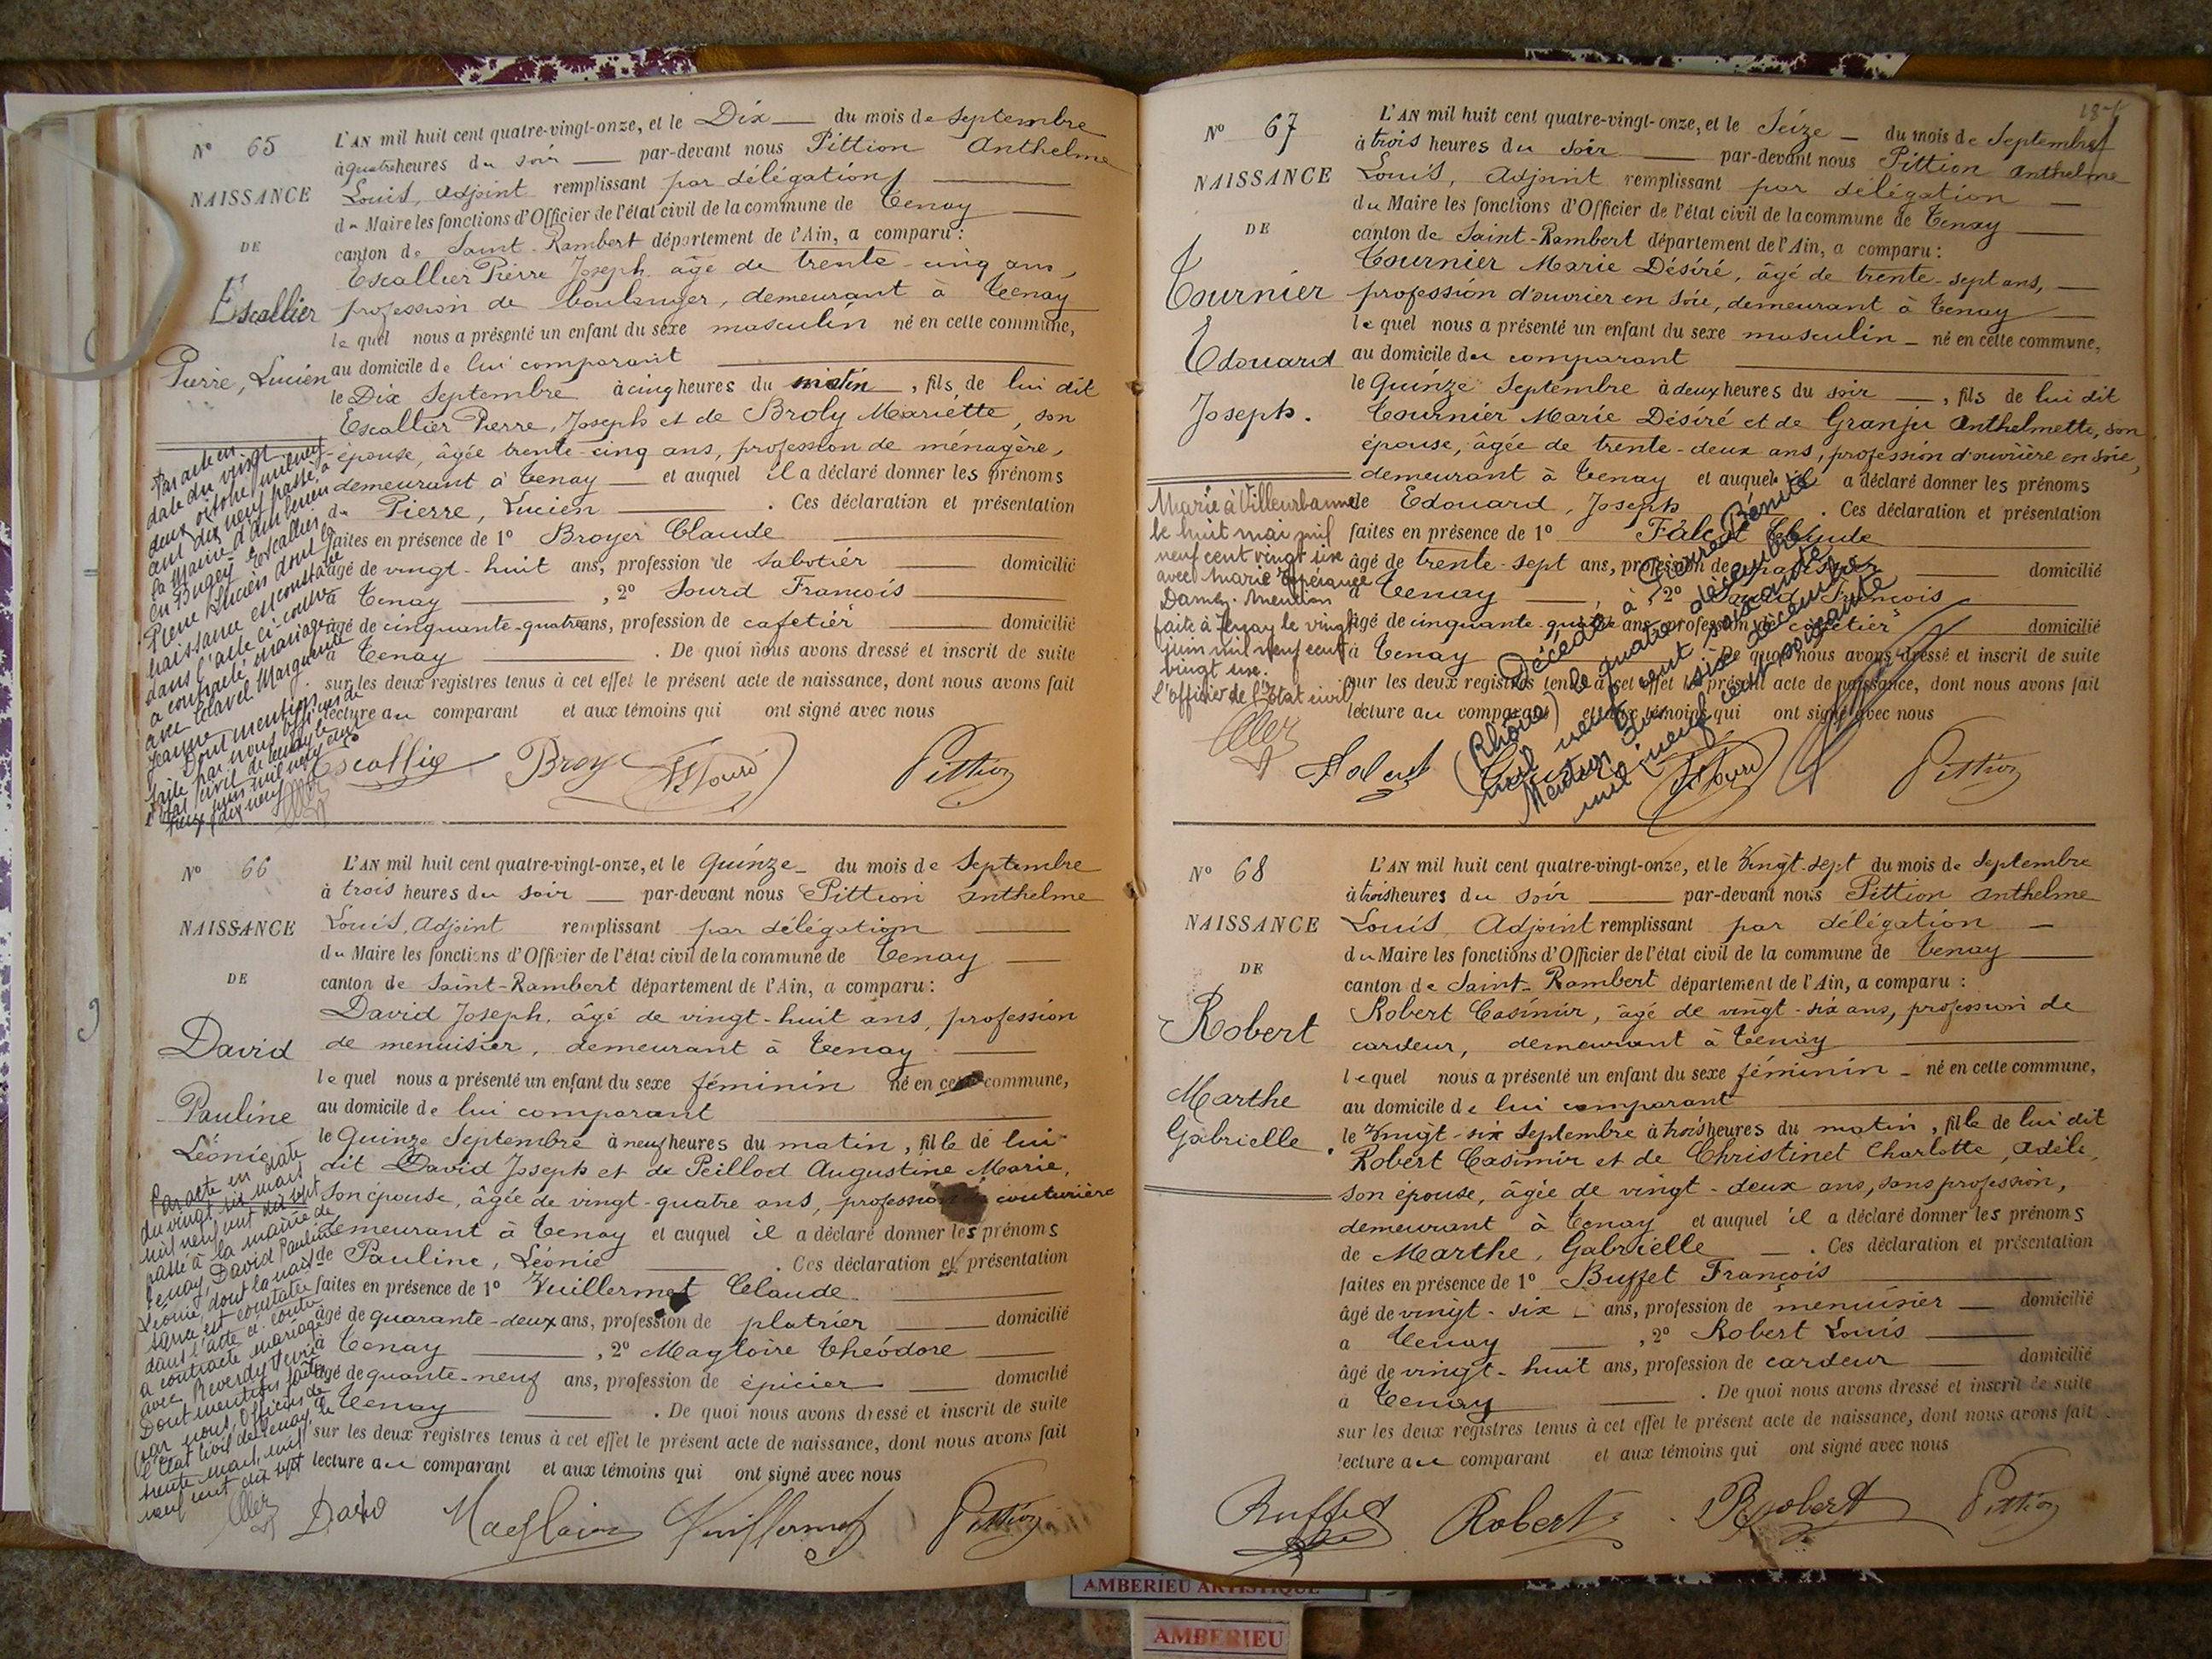 N° 65
NAISSANCE
DE
Escallier
Pierre, Lucien
L'AN mil huit cent quatre-vingt-onze, et le Dix du mois de Septembre
à quatre heures du soir par-devant nous Pittion Anthelme
Louis, Adjoint remplissant par délégation
du Maire les fonctions d'Officier de l'état civil de la commune de Tenay
canton de Saint-Rambert département de l'Ain, a comparu :
Escallier Pierre Joseph âgé de trente-cinq ans,
profession de boulanger, demeurant à Tenay
lequel nous a présenté un enfant du sexe masculin né en cette commune,
au domicile de lui comparant
le Dix Septembre à cinq heures du matin, fils de lui dit
Escallier Pierre, Joseph et de Broly Mariette, son
épouse, âgée trente-cinq ans, profession de ménagère,
demeurant à Tenay et auquel il a déclaré donner les prénoms
de Pierre, Lucien . Ces déclaration et présentation
faites en présence de 1° Broyer Claude
âgé de vingt-huit ans, profession de sabotier domicilié
à Tenay , 2° Sourd François
âgé de cinquante-quatre ans, profession de cafetier domicilié
à Tenay . De quoi nous avons dressé et inscrit de suite
sur les deux registres tenus à cet effet le présent acte de naissance, dont nous avons fait
lecture au comparant et aux témoins qui ont signé avec nous
Par acte en
date du vingt
deux octobre mil neuf
cent dix neuf passé à
la Mairie d'Ambérieu
en Bugey Escallier
Pierre Lucien dont la
naissance est constatée
dans l'acte ci-contre
a contracté mariage
avec Clavel Marguerite
Jeanne
Dont mention
faite par nous officier de
l'état civil de Tenay le
Escallier Broyer F. Sourd Pittion
N° 66
NAISSANCE
DE
David
Pauline
Léonie
L'AN mil huit cent quatre-vingt-onze, et le Quinze du mois de Septembre
à trois heures du soir par-devant nous Pittion Anthelme
Louis, Adjoint remplissant par délégation
du Maire les fonctions d'Officier de l'état civil de la commune de Tenay
canton de Saint-Rambert département de l'Ain, a comparu :
David Joseph, âgé de vingt-huit ans, profession
de menuisier, demeurant à Tenay
lequel nous a présenté un enfant du sexe féminin né en cette commune,
au domicile de lui comparant
le Quinze Septembre à neuf heures du matin, fille de lui
dit David Joseph et de Peillod Augustine Marie,
son épouse, âgée de vingt-quatre ans, profession de couturière
demeurant à Tenay et auquel il a déclaré donner les prénoms
de Pauline, Léonie . Ces déclaration et présentation
faites en présence de 1° Vuillermet Claude
âgé de quarante-deux ans, profession de platrier domicilié
à Tenay , 2° Magloire Théodore
âgé de quante-neuf ans, profession de épicier domicilié
à Tenay . De quoi nous avons dressé et inscrit de suite
sur les deux registres tenus à cet effet le présent acte de naissance, dont nous avons fait
lecture au comparant et aux témoins qui ont signé avec nous
Par acte en date
du vingt six mars
mil neuf cent dix sept
passé à la mairie de
Tenay, David Pauline
Léonie dont la nais-
sance est constatée
dans l'acte ci-contre
a contracté mariage
avec Reverdy
Dont mention faite
par nous, Officier de
l'Etat civil de Tenay, le
trente mars, mil
neuf cent dix sept
David Magloire Vuillermet Pittion
187
N° 67
NAISSANCE
DE
Tournier
Edouard
Joseph.
L'AN mil huit cent quatre-vingt-onze, et le Seize du mois de Septembre
à trois heures du soir par-devant nous Pittion Anthelme
Louis, Adjoint remplissant par délégation
du Maire les fonctions d'Officier de l'état civil de la commune de Tenay
canton de Saint-Rambert département de l'Ain, a comparu :
Tournier Marie Désiré, âgé de trente-sept ans,
profession d'ouvrier en soie, demeurant à Tenay
lequel nous a présenté un enfant du sexe masculin né en cette commune,
au domicile du comparant
le Quinze Septembre à deux heures du soir , fils de lui dit
Tournier Marie Désiré et de Granju Anthelmette, son
épouse, âgée de trente-deux ans, profession d'ouvrière en soie,
demeurant à Tenay et auquel il a déclaré donner les prénoms
de Edouard, Joseph . Ces déclaration et présentation
faites en présence de 1° Falcat Claude
âgé de trente-sept ans, profession de domicilié
à Tenay , 2° Sourd François
âgé de cinquante-quatre ans, profession de cafetier domicilié
à Tenay . De quoi nous avons dressé et inscrit de suite
sur les deux registres tenus à cet effet le présent acte de naissance, dont nous avons fait
lecture au comparant et aux témoins qui ont signé avec nous
Marié à Villeurbanne
le huit mai mil
neuf cent vingt six
avec Marie Espérance
Damy. Mention
faite à Tenay le vingt
juin mil neuf cent
vingt six.
l'officier de l'Etat civil
Décédé à Pierre Bénite
(Rhône) le quatre décembre
mil neuf cent soixante
Mention du six décembre
mil neuf cent soixante
Falcat F. Sourd Pittion
N° 68
NAISSANCE
DE
Robert
Marthe
Gabrielle.
L'AN mil huit cent quatre-vingt-onze, et le Vingt-sept du mois de Septembre
à trois heures du soir par-devant nous Pittion Anthelme
Louis Adjoint remplissant par délégation
du Maire les fonctions d'Officier de l'état civil de la commune de Tenay
canton de Saint-Rambert département de l'Ain, a comparu :
Robert Casimir, âgé de vingt-six ans, profession de
cardeur, demeurant à Tenay
lequel nous a présenté un enfant du sexe féminin né en cette commune,
au domicile de lui comparant
le Vingt-six Septembre à trois heures du matin, fille de lui dit
Robert Casimir et de Christinet Charlotte, Adèle,
son épouse, âgée de vingt-deux ans, sans profession,
demeurant à Tenay et auquel il a déclaré donner les prénoms
de Marthe, Gabrielle . Ces déclaration et présentation
faites en présence de 1° Buffet François
âgé de vingt-six ans, profession de menuisier domicilié
à Tenay , 2° Robert Louis
âgé de vingt-huit ans, profession de cardeur domicilié
à Tenay . De quoi nous avons dressé et inscrit de suite
sur les deux registres tenus à cet effet le présent acte de naissance, dont nous avons fait
lecture au comparant et aux témoins qui ont signé avec nous
Buffet Robert Robert Pittion
AMBERIEU ARTISTIQUE
AMBERIEU